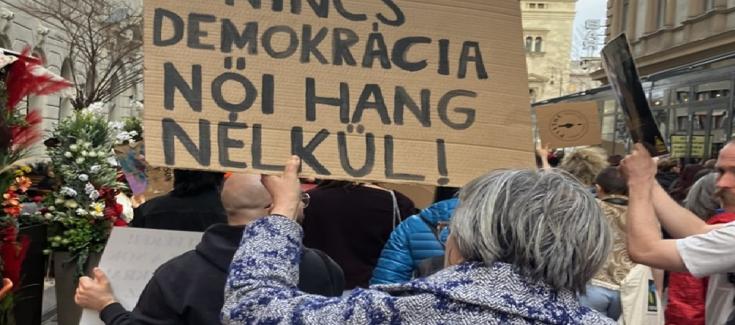 NINCS
DEMOKRÁCIA
NŐI HANG
NÉLKÜL!